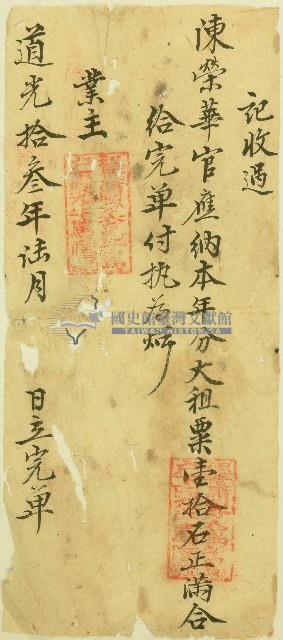 記收過
陳榮華官應納本年分大租粟壹拾石正滿合
給完单付执為炤
業主
道光拾叁年陆月 日立完单
國史館臺灣文獻館
TAIWAN HISTORICA